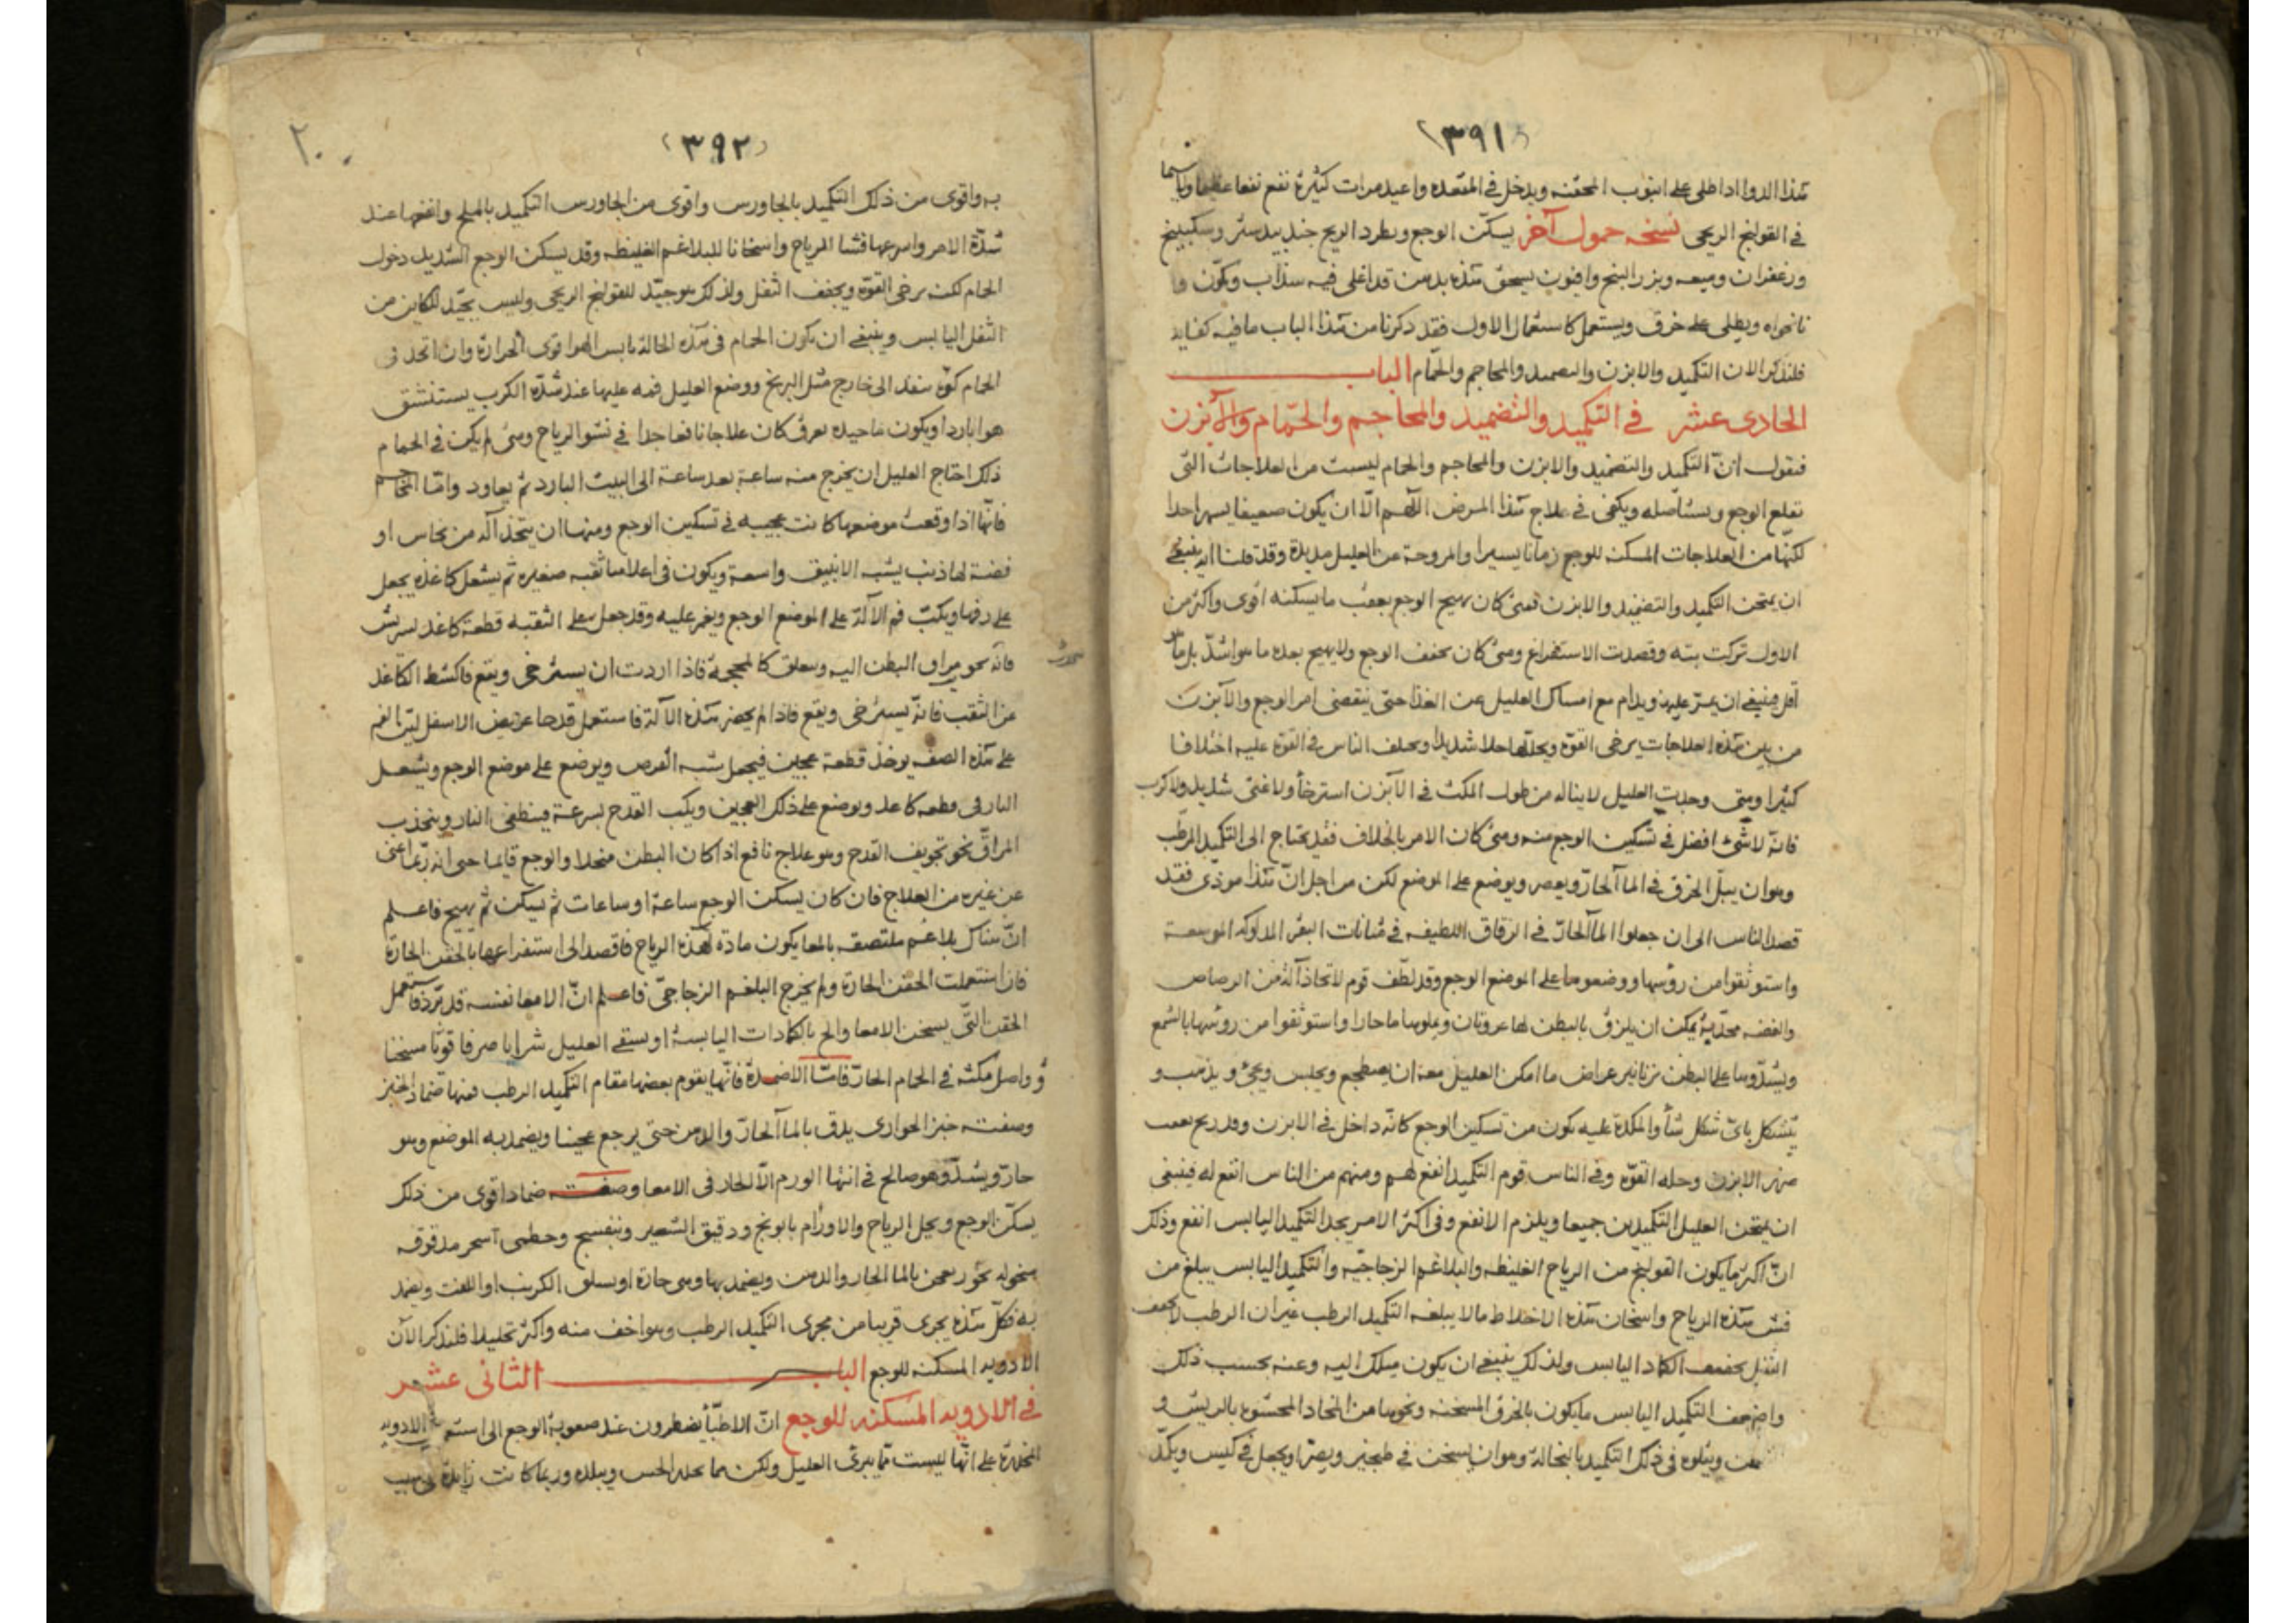 (٣٩١)
هذا الدوا اذا طلى على انبوب الحقنه ويدخل في المقعده واعيد مرات كثيرة نفع نفعا عظيما ولا سيما
في القولنج الريحى نسخه حمول آخر يسكّن الوجع ويطرد الريح جندبيدستر وسكبينج
وزعفران وميعه وبزر البنج وافيون يسحق هذه بدهن قد اغلى فيه سذاب وكمّون
نانخواه ويطلى على خرق ويستعمل كاستعمال الاول فقد ذكرنا من هذا الباب ما فيه كفايه
فلنذكر الان التكميد والابزن والتضميد والمحاجم والحمّام الباب
الحادى عشر في التكميد والتضميد والمحاجم والحمّام والآبزن
فنقول انّ التكميد والتضميد والابزن والمحاجم والحمام ليست من العلاجات التى
تقلع الوجع ويستأصله ويكفى في علاج هذا المرض اللّهم الّا ان يكون ضعيفا يسيرا جدا
لكنّها من العلاجات المسكنه للوجع زمانا يسيرا والمروحة عن العليل مديدة وقد قلنا انه ينبغى
ان يمتحن التكميد والتضميد والابزن فمتى كان يهيج الوجع بعقب ما يسكنه اقوى واكثر من
الاول تركت بتّه وقصدت الاستفراغ ومتى كان يخفف الوجع ولا يهيج بعده ما هو اشدّ بل ما هو
اقل فينبغى ان يمرّ عليه ويدام مع امساك العليل عن الغذا حتى ينقضى امر الوجع والآبزن
من بين هذه العلاجات يرخى القوة ويحللّها حلا شديدا ويختلف الناس في القوة عليه اختلافا
كثيرا ومتى وجدت العليل لا يناله من طول المكث في الآبزن استرخأ ولا غشى شديد ولا كرب
فانّه لا شئ افضل في تسكين الوجع منه ومتى كان الامر بالخلاف فقد يحتاج الى التكميد الرطب
وهو ان يبلّ الخرق في الما آلحارّ ويعصر ويوضع على الموضع لكن من اجل انّ هذا موذى فقد
قصد الناس الى ان جعلوا الما آلحارّ في الزقاق اللطيفه في مثانات البقر المدلوكه الموسعة
واستوثقوا من رؤسها ووضعوها على الموضع الوجع وقد لطّف قوم لاتخاذ آلة من الرصاص
والفضه محدّبة يمكن ان يلزق بالبطن لها عروتان ويملوها ما حارا واستوثقوا من روسها بالشمع
ويشدّوها على البطن بزنانير عراض ما امكن العليل معه ان يضطجع ويجلس ويجئ ويذهب و
يتشكل باىّ شكل شأ والمكدة عليه يكون من تسكين الوجع كانّه داخل في الابزن وقد ربح تعب
ضرر الابزن وحله القوّه وفي الناس قوم التكميد انفع لهم ومنهم من الناس انفع له فينبغى
ان يمتحن العليل التكميدين جميعا ويلزم الانفع وفى اكثر الامر يجد التكميد اليابس انفع وذلك
انّ اكثر ما يكون القولنج من الرياح الغليظه والبلاغم الزجاجيّه والتكميد اليابس يبلغ من
فش هذه الرياح واسخان هذه الاخلاط ما لا يبلغه التكميد الرطب غير ان الرطب لا يجفف
الثفل يجففه الكماد اليابس ولذلك ينبغى ان يكون ميلك اليه وعنه بحسب ذلك
واضعف التكميد اليابس ما يكون بالخرق المسخنه ونحوها من المخاد المحشوه بالريش و
ويتلوه فى ذلك التكميد بالنخالة وهو ان يسخن في طنجير ويصرّ او يجعل في كيس ويكمّد
(٣٩٢)
٢٠٠
به واقوى من ذلك التكميد بالجاورس واقوى من الجاورس التكميد بالملح وانفعها عند
شدّة الامر واسرعها فشا للرياح واسخانا للبلاغم الغليظه وقد يسكن الوجع الشديد دخول
الحمام لكنه يرخى القوّه ويجفف الثفل ولذلك هو جيّد للقولنج الريحى وليس بجيّد للكاين من
الثفل اليابس وينبغى ان يكون الحمام فى هذه الحالة يابس الهوا قوى الحرارة وان اتخذ فى
الحمام كوّة ينفذ الى خارج مثل البربخ ووضع العليل فمه عليها عند شدّة الكرب يستنشق
هوا باردا ويكون ما حيده يعرق كان علاجا نافعا جدا في نشو الرياح ومتى لم يكن في الحمام
ذلك احتاج العليل ان يخرج منه ساعة بعد ساعة الى البيت البارد ثم يعاود وامّا المحاجم
فانّها اذا وقعت موضعها كانت عجيبه في تسكين الوجع ومنها ان يتخذ آله من نحاس او
فضة لها ذنب يشبه الانبيق واسعة ويكون فى اعلاها ثقبه صغيره ثم يشعل كاغذه يجعل
على رفها ويكبّ فم الآلة على الموضع الوجع ويغمر عليه وقد جعل على الثقبه قطعة كاغد لسريش
فانّه نحو مراق البطن اليه ويتعلق كالمحجمة فاذا اردت ان يسترخى ويقع فاكشط الكاغذ
عن الثقب فانّه يسترخى ويقع فاذا لم يحضر هذه الآلة فاستعمل قدحا عريض الاسفل ليّن الفم
على هذه الصفه يوخذ قطعة عجين فيجعل شبه القرص ويوضع على موضع الوجع ويشعل
النار فى قطعه كاغد ويوضع على ذلك العجين ويكب القدح بسرعة فينطفى النار وينجذب
المراقّ نحو تجويف القدح وهو علاج نافع اذا كان البطن منحلا والوجع قائما حتى انه ربّما اغنى
عن غيره من العلاج فان كان يسكن الوجع ساعة او ساعات ثم يسكن ثم يهيج فاعلم
انّ هناك بلاغم ملتصقه بالمعا يكون مادة لهذه الرياح فاقصد الى استفراغها بالحقن الحارة
فان استعملت الحقن الحارة ولم يخرج البلغم الزجاجىّ فاعلم انّ الامعا نفسه قد برّد فاستعمل
الحقن التى يسخن الامعا والح بالكمادات اليابسة او يسقى العليل شرابا صرفا قويّا مسخنا
وواصل مكثه في الحمام الحارّ فامّا الاضمدة فانّها يقوم بعضها مقام التكميد الرطب فمنها ضماد الخبز
وصفته خبز الحوارى يدق بالما آلحارّ والدهن حتى يرجع عجينا ويضمد به الموضع وهو
حارّ ويشدّ وهو صالح في انتها الورم الآلحار فى الامعا وصفته ضماد اقوى من ذلك
يسكّن الوجع ويحل الرياح والاورأم بابونج ودقيق الشعير وبنفسج وخطمى اسحر مدقوقه
منخوله يعجن بالما الحار والدهن ويضمد بها وهى حارة او يسلق الكرنب او اللفت ويضمد
به فكلّ هذه يجرى قريبا من مجرى التكميد الرطب وهو اخف منه واكثر تحليلا فلنذكر الآن
الادويه المسكنه للوجع الباب الثانى عشر
في الادويه المسكنه للوجع انّ الاطبّأ يضطرون عند صعوبة الوجع الى استع الادويه
المخدرة على انّها ليست ممّا يبرئ العليل ولكن مما يخدر الحس ويبلده وربما كانت زايدة فى سبب